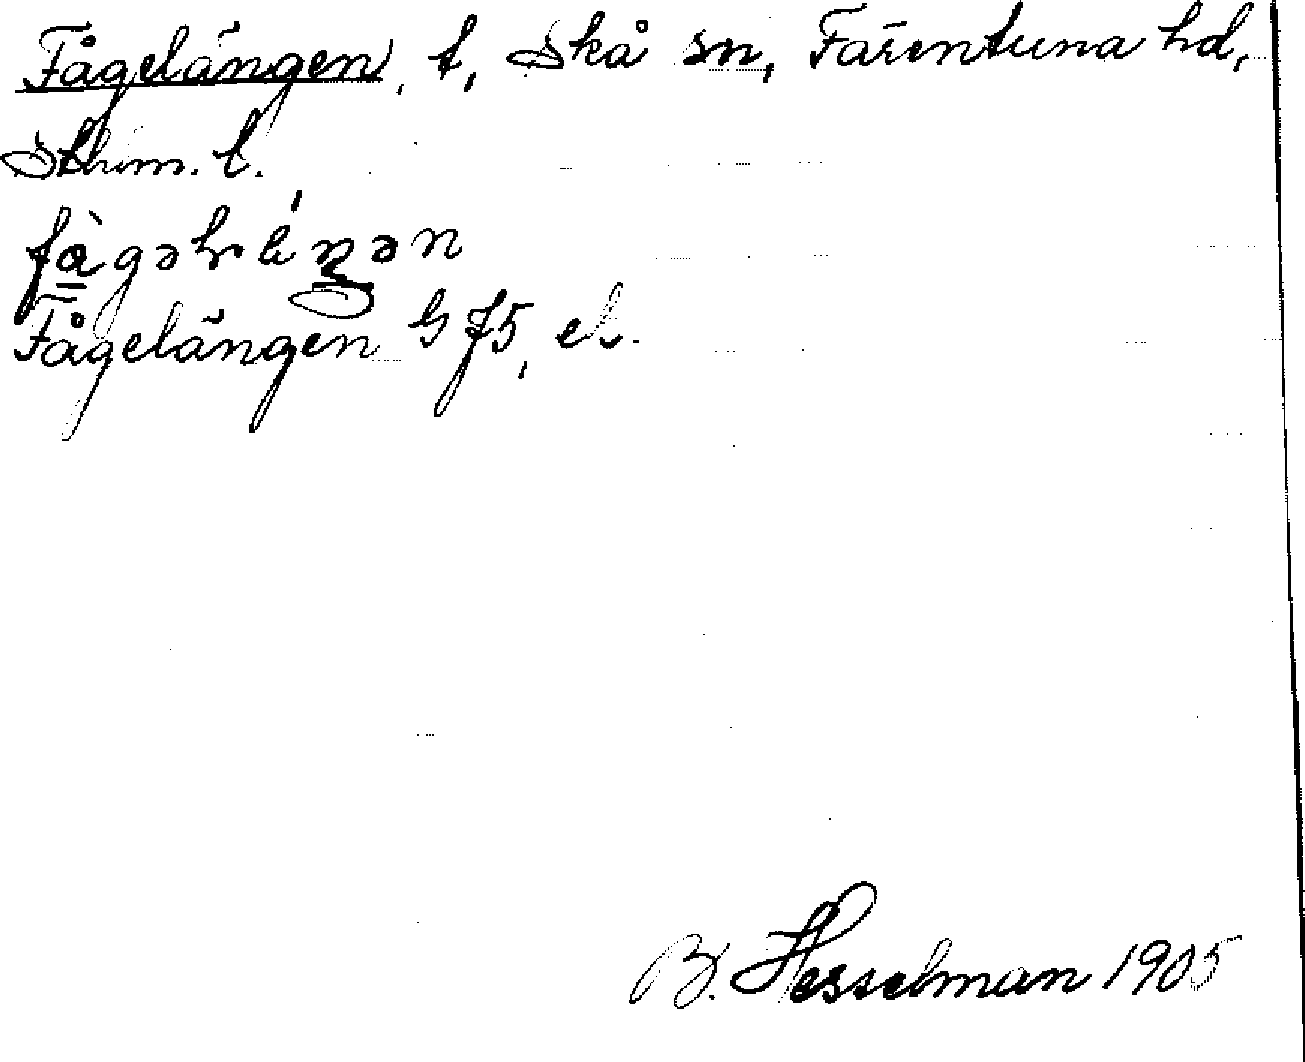 Fågelängen, t, Skå sn, Färentuna hd,
Sthm. l.
Fågelängen G 75, el.
B. Hesselman 1905